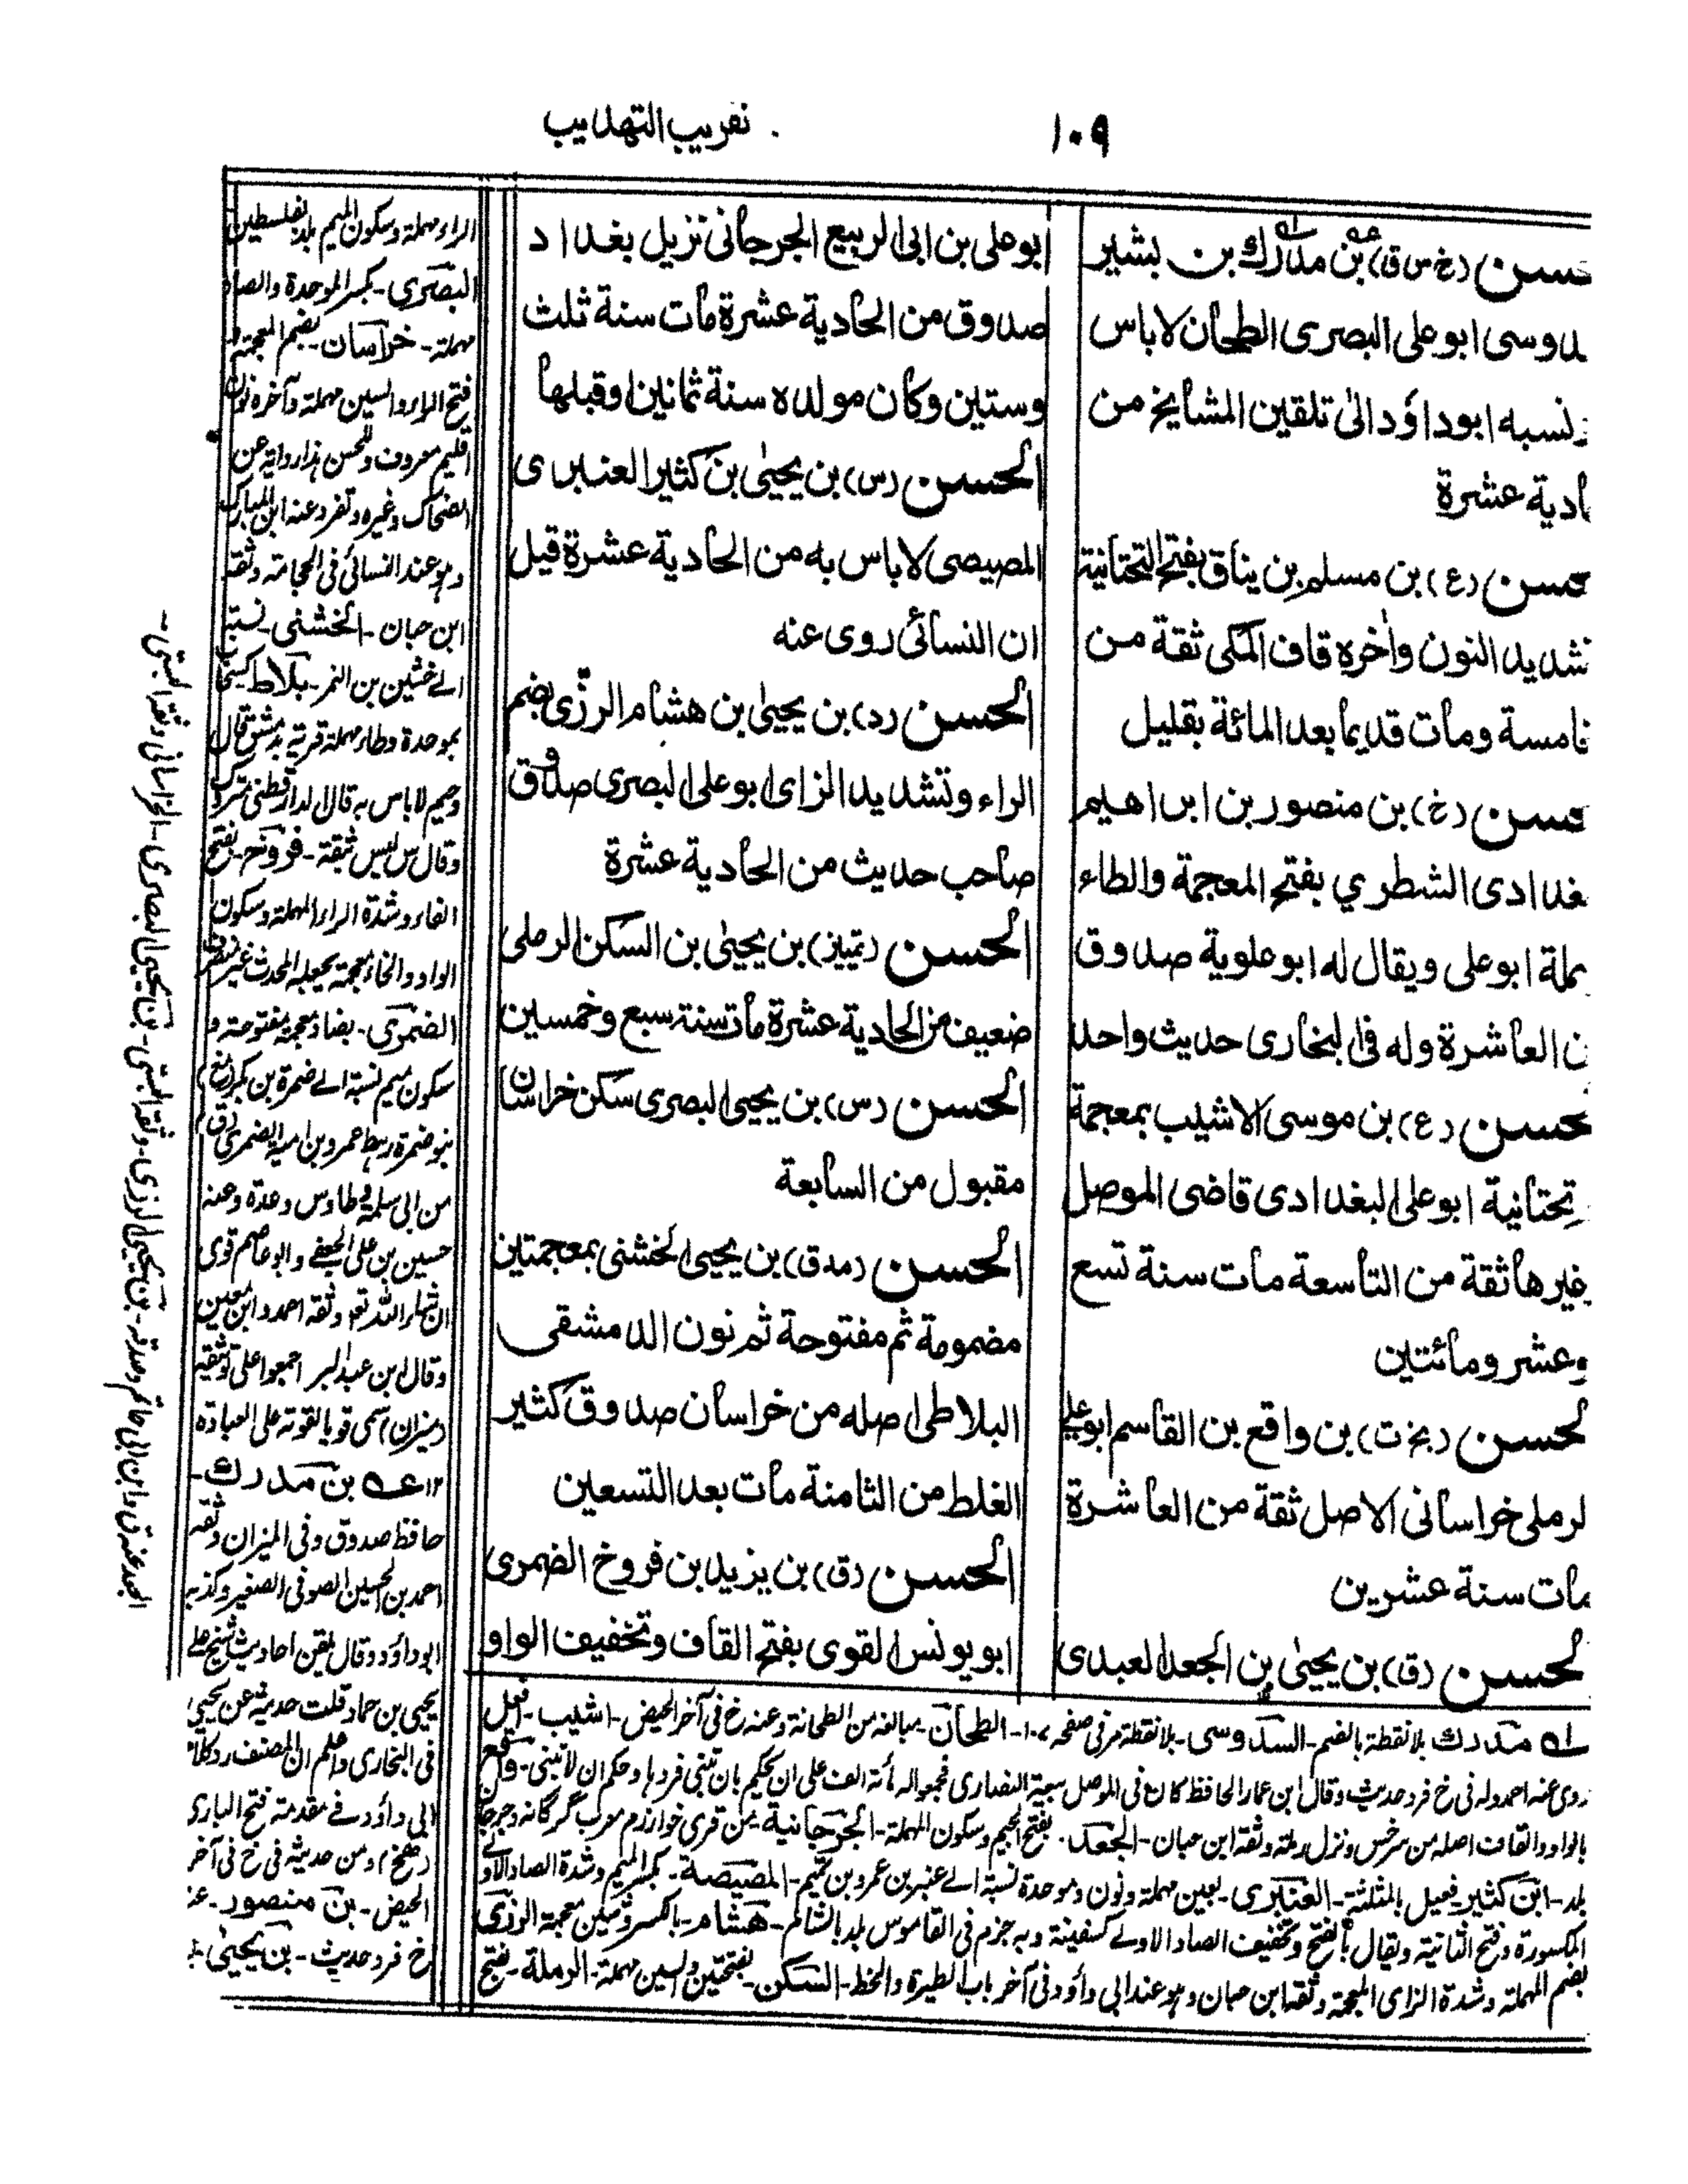 ١٠٩
تقريب التهذيب
حسن (خ س ق) بن مدرك بن بشير
دوسى ابو على البصرى الطحان لاباس
نسبه ابوداؤد الى تلقين المشايخ من
ادية عشرة
حسن (ع) بن مسلم بن يناق بفتح التحتانية
تشديد النون وآخره قاف المكى ثقة من
امسة ومات قديما بعد المائة بقليل
حسن (خ) بن منصور بن ابراهيم
غدادى الشطري بفتح المعجمة والطاء
ملة ابو على ويقال له ابو علوية صدوق
ن العاشرة وله فى البخارى حديث واحد
حسن (ع) بن موسى الاشيب بمعجمة
تحتانية ابو على البغدادى قاضى الموصل
غيرها ثقة من التاسعة مات سنة تسع
وعشر ومائتين
لحسن (بخ ت) بن واقع بن القاسم ابو على
لرملى خراسانى الاصل ثقة من العاشرة
مات سنة عشرين
لحسن (ق) بن يحيىٰ بن الجعد العبدى
ابو على بن ابى الربيع الجرجانى نزيل بغداد
صدوق من الحادية عشرة مات سنة ثلث
وستين وكان مولده سنة ثمانين او قبلها
الحسن (س) بن يحيىٰ بن كثير العنبرى
المصيصى لاباس به من الحادية عشرة قيل
ان النسائى روى عنه
الحسن (د) بن يحيىٰ بن هشام الرزّى بضم
الراء وتشديد الزاى ابو على البصرى صدوق
صاحب حديث من الحادية عشرة
الحسن (تمييز) بن يحيىٰ بن السكن الرملى
ضعيف من الحادية عشرة مات سنة سبع وخمسين
الحسن (س) بن يحيى البصرى سكن خراسان
مقبول من السابعة
الحسن (مد ق) بن يحيى الخشنى بمعجمتين
مضمومة ثم مفتوحة ثم نون الدمشقى
البلاطى اصله من خراسان صدوق كثير
الغلط من الثامنة مات بعد التسعين
الحسن (ق) بن يزيد بن فروخ الضمرى
ابو يونس القوى بفتح القاف وتخفيف الواو
الراء مهملة وسكون الميم بلد بفلسطين
البصرى - بكسر الموحدة والصاد
مهملة - خراسان - بضم المعجمة و
فتح الراء والسين مهملة وآخره نون
اقليم معروف وللحسن هذا رواية عن
الضحاك وغيره وتفرد عنه ابن المبارك
وهو عند النسائى فى الحجامة وثقه
ابن حبان - الخشنى - نسبة
الے خشين بن النمر - بلاط
بموحدة وطاء مهملة قرية بدمشق قال
دحيم لاباس به قال الدارقطنى متروك
وقال س ليس بثقة - فروخ - بفتح
الفاء وشدة الراء المهملة وسكون
الواو والخاء معجمة يجعله المحدث غير منصرف
الضمرى - بضاد معجمة مفتوحة و
سكون ميم نسبة الے ضمرة بن بكر
بنو ضمرة رهط عمرو بن امية الضمرى
عن ابى سلمة وطاوس وعدة وعنه
حسين بن على الجعفى وابو عاصم قوى
ان شاء الله تع وثقه احمد وابن معين
وقال ابن عبد البر اجمعوا على توثيقه
(ميزان) سمى قويا لقوته على العبادة
١٢ عـه بن مدرك -
حافظ صدوق وفى الميزان وثقه
احمد بن الحسين الصوفى الصغير وكذبه
ابوداؤد وقال يلقن احاديث شيخ على
يحيى بن حماد قلت حديثه عن يحيى
فى البخارى واعلم ان المصنف رد كلام
ابى داؤد فى مقدمة فتح البارى
ومن حديثه فى خ فى آخر
الحيض - بن منصور -
خ فرد حديث - بن يحيىٰ -
لـه مدرك بلا نقطة بالضم - السدوسى - بلا نقطة مر فى صفحه ١٠٧ - الطحان - مبالغة من الطحانة وعنه خ فى آخر الحيض - اشيب - قيل
روى عنه احمد وله فى خ فرد حديث وقال ابن عمار الحافظ كان فى الموصل بيعة النصارى فجمعوا له مائة الف على ان يحكم بان تبنى فردها وحكم ان لا تبنى - واقع
بالواو والقاف اصله من سرخس ونزل رملة وثقه ابن حبان - الجعد - بفتح الجيم وسكون المهملة - الجرجانية - من قرى خوارزم معرب گرگانه وجرجان
بلد - ابن كثير - فعيل بالمثلثة - العنبرى - بعين مهملة ونون وموحدة نسبة الے عنبر بن عمرو بن تميم - المصيصة - بكسر الميم وشدة الصاد الاولے
المكسورة وفتح الثانية ويقال بالفتح وتخفيف الصاد الاولے كسفينة وبه جزم فى القاموس بلد بالشام - هشام - بالكسر وشين معجمة الرزى
بضم المهملة وشدة الزاى المعجمة وثقه ابن حبان وهو عند ابى داؤد فى آخر باب الطيرة والخط - السكن - بفتحتين والسين مهملة - الرملة - بفتح